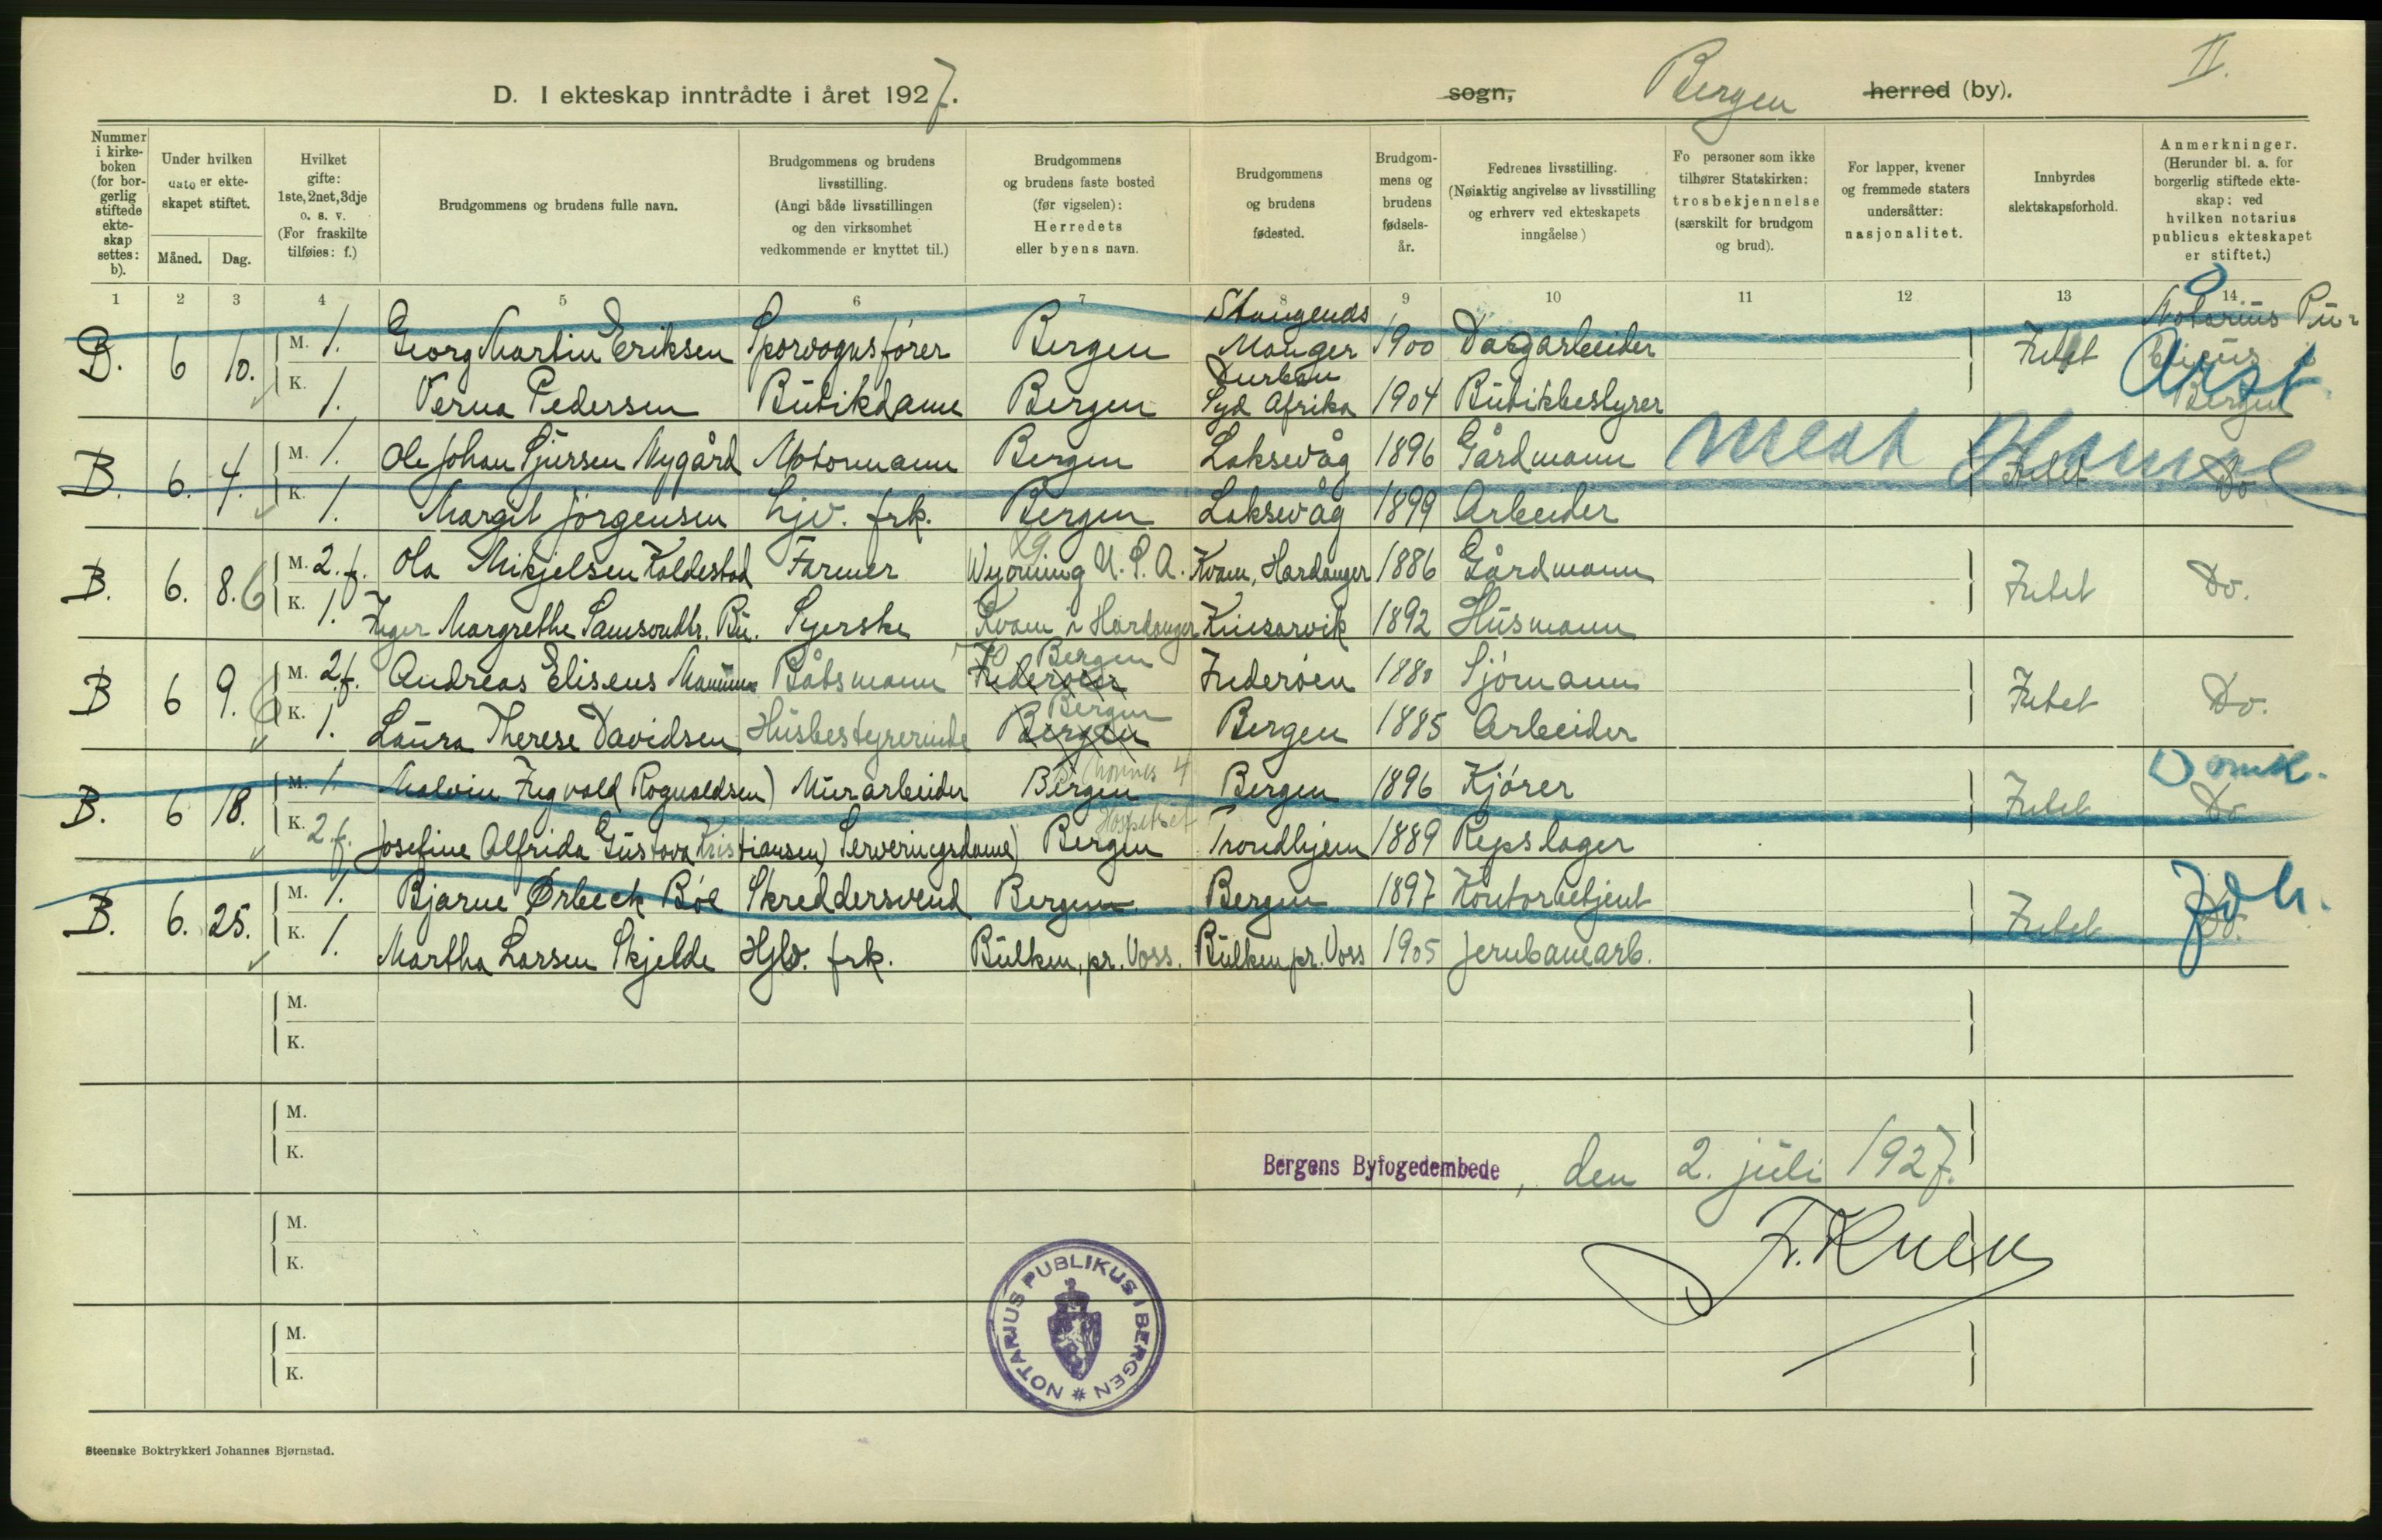 II.
D. I ekteskap inntrådte i året 1927. sogn, Bergen herred (by).
Nummer i kirke-boken (for bor-gerlig stiftede ekte-skap settes: b).
Under hvilken dato er ekte-skapet stiftet.
Måned. Dag.
Hvilket gifte: 1ste, 2net, 3dje o. s. v. (For fraskilte tilføies: f.)
Brudgommens og brudens fulle navn.
Brudgommens og brudens livsstilling. (Angi både livsstillingen og den virksomhet vedkommende er knyttet til.)
Brudgommens og brudens faste bosted (før vigselen): Herredets eller byens navn.
Brudgommens og brudens fødested.
Brudgom-mens og brudens fødsels-år.
Fedrenes livsstilling. (Nøiaktig angivelse av livsstilling og erhverv ved ekteskapets inngåelse)
Fo personer som ikke tilhører Statskirken: trosbekjennelse (særskilt for brudgom og brud).
For lapper, kvener og fremmede staters undersåtter: nasjonalitet.
Innbyrdes slektskapsforhold.
Anmerkninger. (Herunder bl. a. for borgerlig stiftede ekte-skap: ved hvilken notarius publicus ekteskapet er stiftet.)
1 2 3 4 5 6 7 8 9 10 11 12 13 14
B. 6 10. M. 1. Georg Martin Eriksen Sporvognsfører Bergen Manger 1900 Dagarbeider Intet Notarius Pu-blicus i Bergen
K. 1. Verna Pedersen Butikdame Bergen Durban Syd Afrika 1904 Butikbestyrer
B. 6. 4. M. 1. Ole Johan Sjursen Nygård Motormann Bergen Laksevåg 1896 Gårdmann Intet Do
K. 1. Margit Jörgensen Hjv. frk. Bergen Laksevåg 1899 Arbeider
B. 6. 8. 6 M. 2. f. Ola Mikjelsen Koldestad Farmer Wyoming U. S. A. Kvam, Hardanger 1886 Gårdmann Intet Do.
K. 1. Inger Margrethe Samsondtr. Bu. Syerske Kvam i Hardanger Kinsarvik 1892 Husmann
B 6 9. 6 M. 2 f. Andreas Eliseus Båtsmann Bergen Inderöen Inderöen 1880 Sjömann Intet Do.
K. 1. Laura Therese Davidsen Husbestyrerinde Bergen Bergen Bergen 1885 Arbeider
B. 6 18. M. 1. Malvin Ingvald Rognaldsen) Murarbeider Bergen Bergen 1896 Kjörer Intet Do Domk.
K. 2 f. Josefine Alfrida Gustava Kristiansen) Serveringsdame) Bergen Trondhjem 1889 Repslager
B. 6. 25. M. 1. Bjarne Ørbeck Böe Skreddersvend Bergen Bergen 1897 Kontorbetjent Intet Do. Joh.
K. 1. Martha Larsen Skjelde Hjv. frk. Bulken, pr. Voss. Bulken pr. Voss 1905 Jernbanearb.
M.
K.
M.
K.
Bergens Byfogedembede, den 2. juli 1927.
M.
K.
M.
K.
NOTARIUS PUBLIKUS I BERGEN
Steenske Boktrykkeri Johannes Bjørnstad.